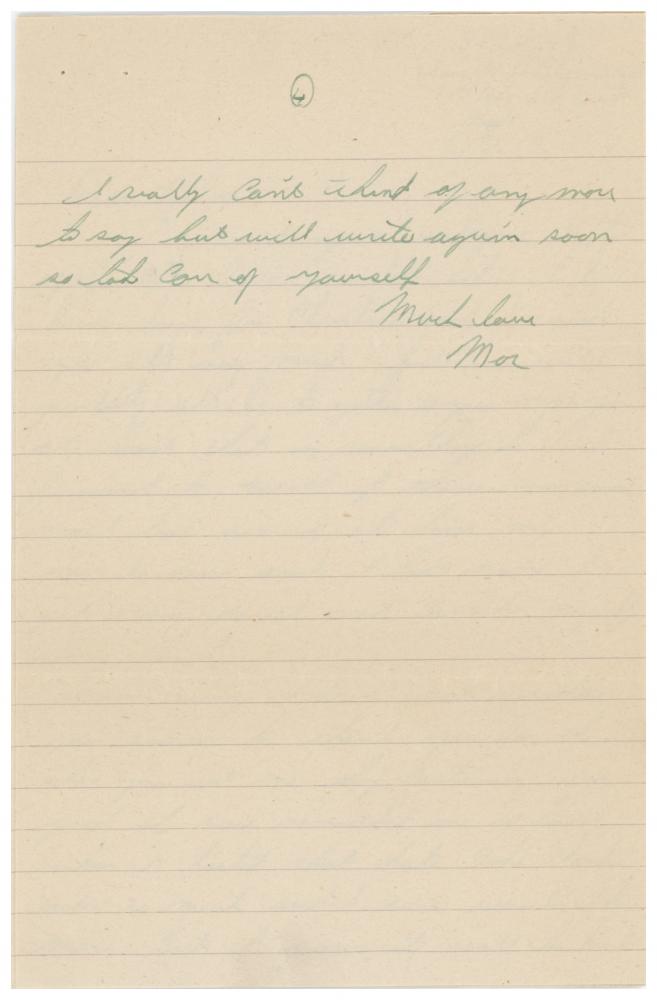 4
I really can't think of any more
to say but will write again soon
so take care of yourself
Much love
Mac